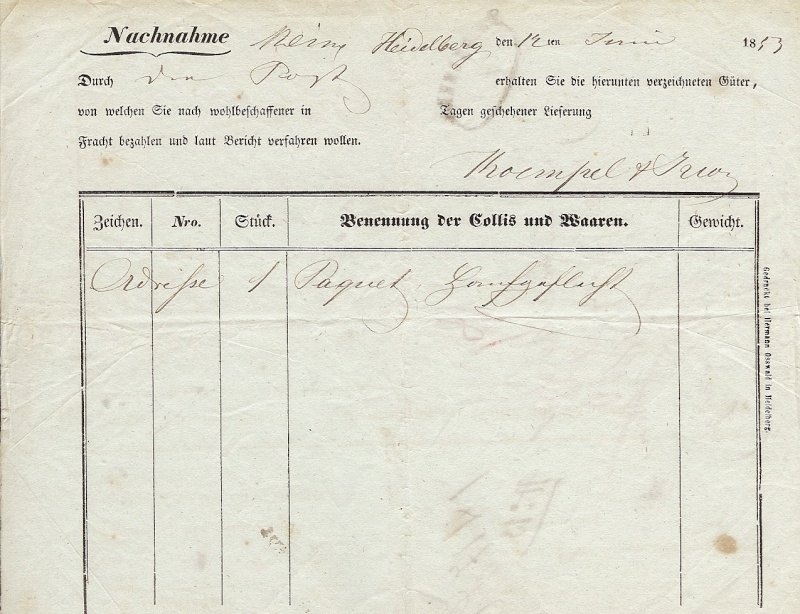 Nachnahme Keine Heidelberg den 12ten Juni 1853
Durch die Post erhalten Sie die hierunten verzeichneten Güter,
von welchen Sie nach wohlbeschaffener in Tagen geschehener Lieferung
Fracht bezahlen und laut Bericht verfahren wollen.
Zeichen. Nro. Stück. Benennung der Collis und Waaren. Gewicht.
Adresse 1 Paquet Hanfgeflecht
Gedruckt bei Hermann Osswald in Heidelberg.